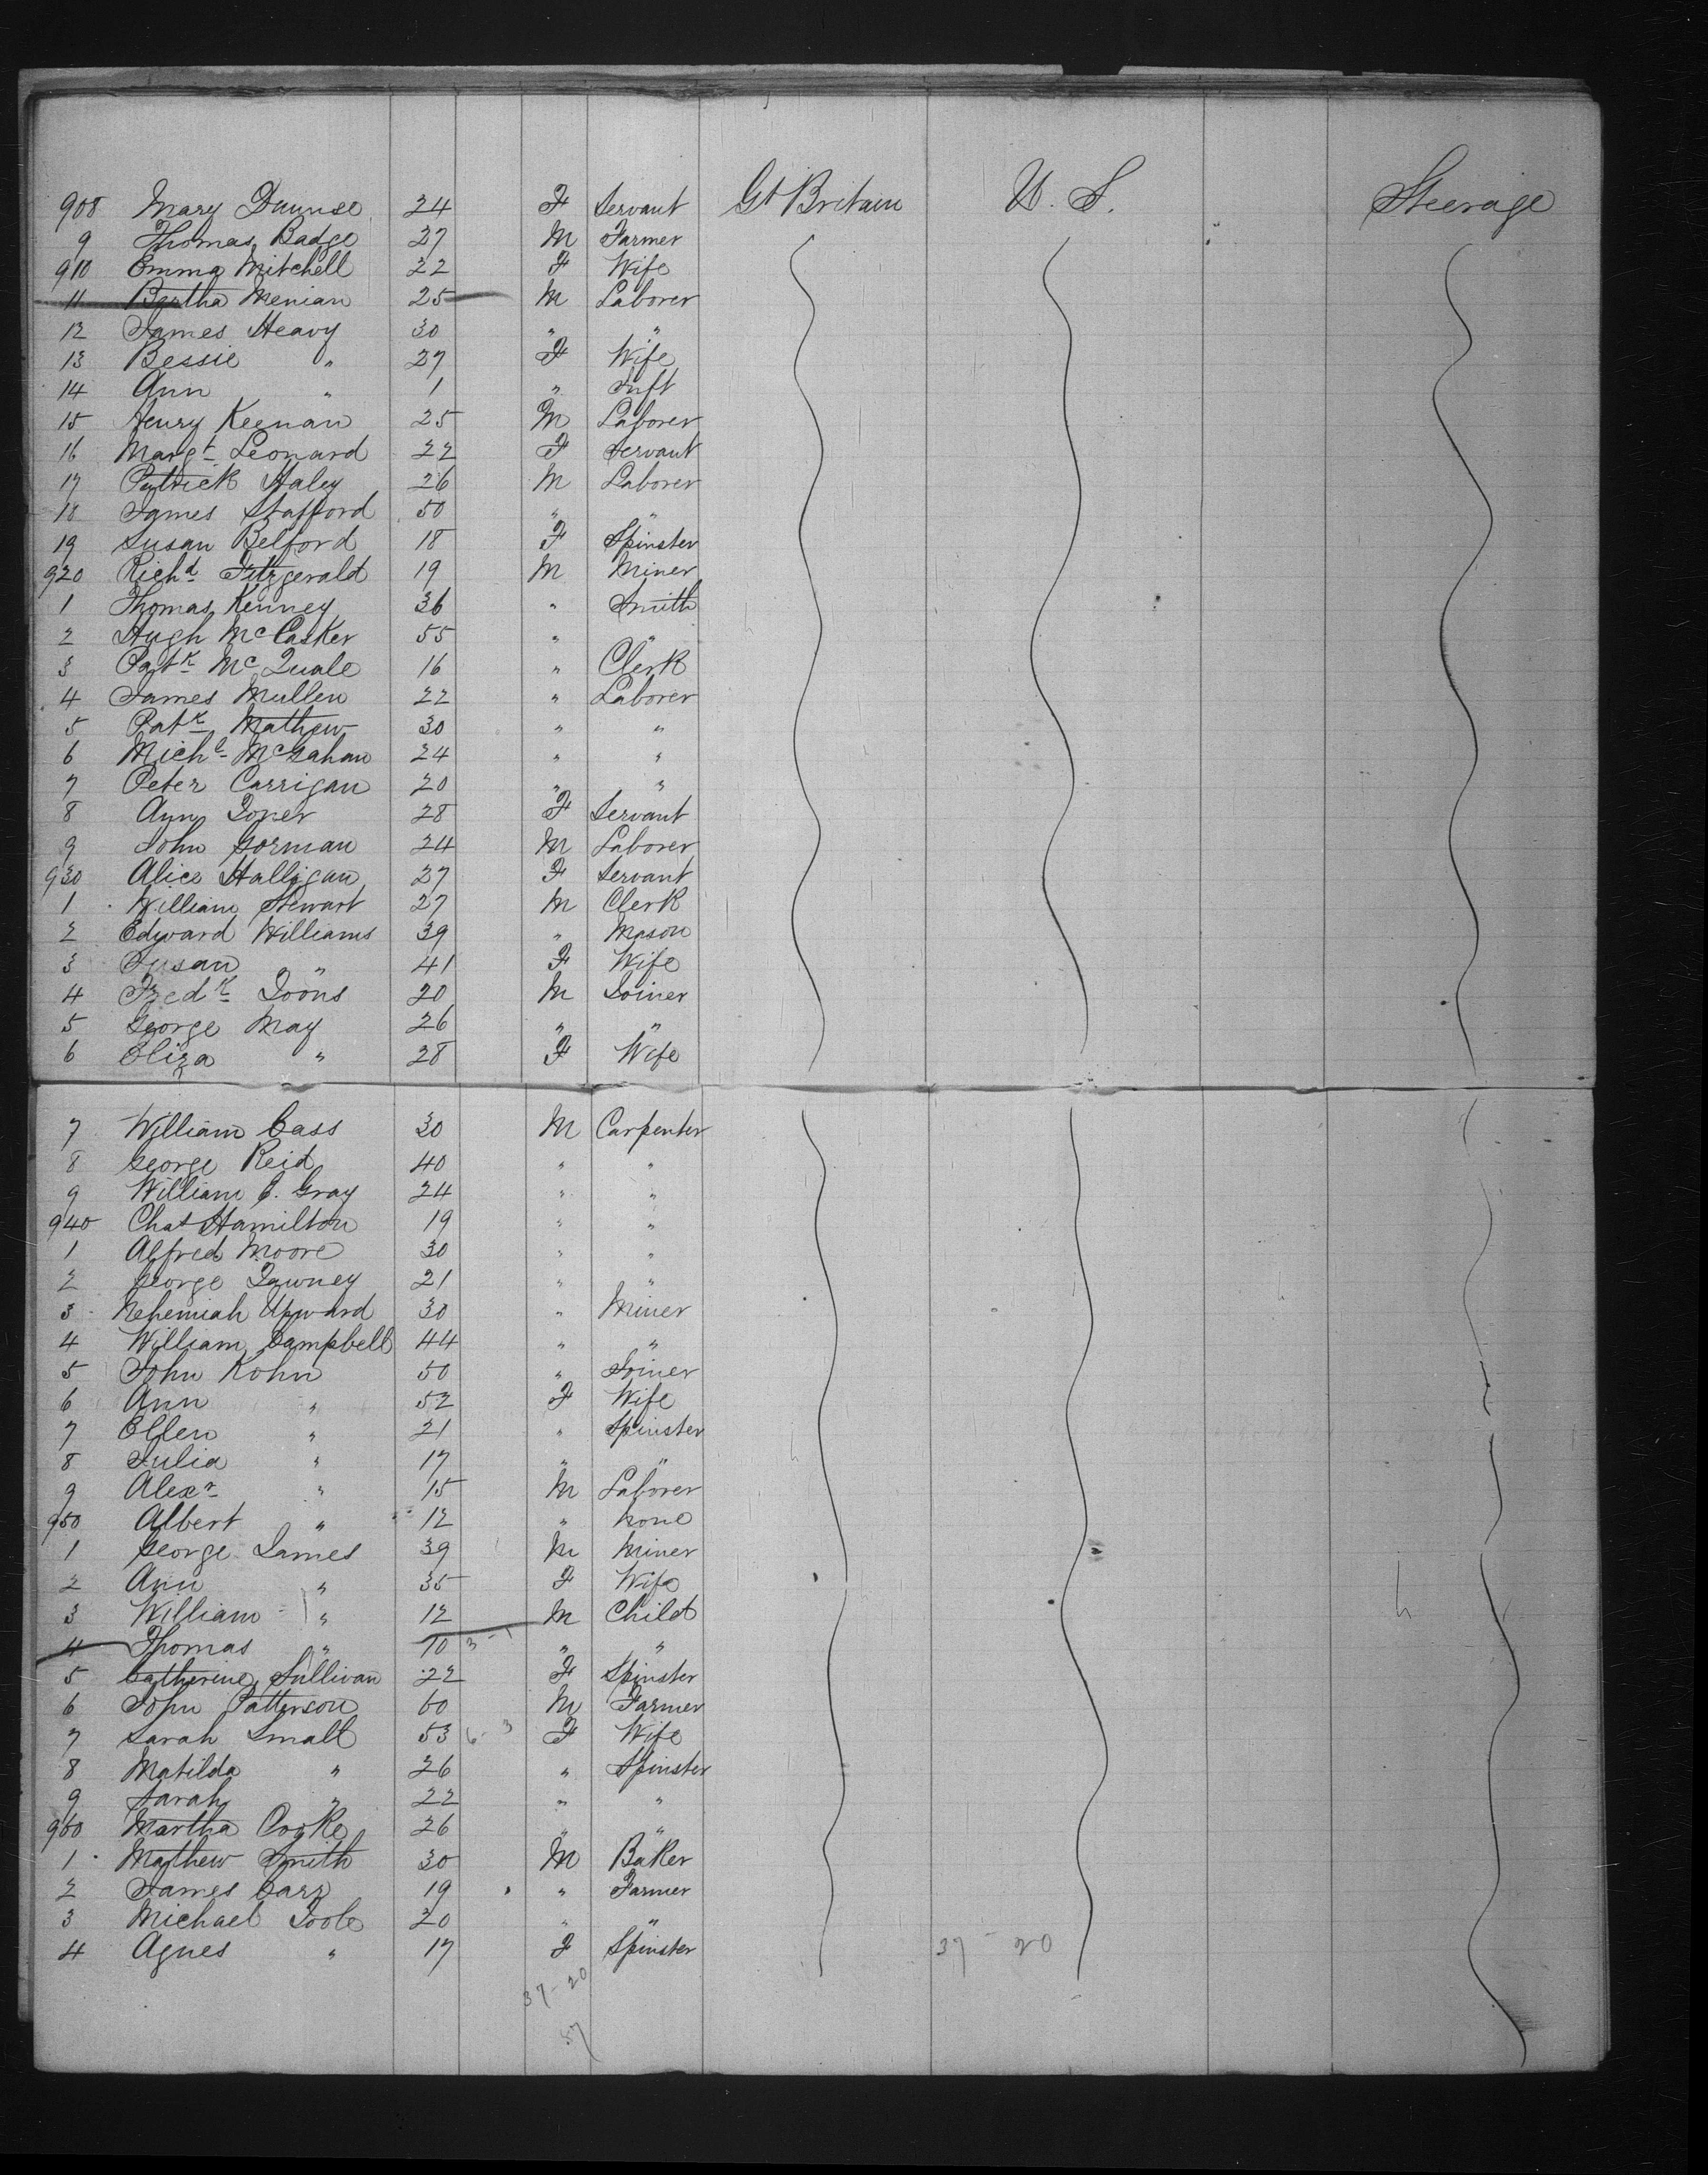 908 Mary Dunnse 24 F Servant Gt Britain U. S. Steerage
9 Thomas Badge 27 M Farmer
910 Emma Mitchell 22 F Wife
11 Bertha Menian 25 M Laborer
12 James Heavy 30 " "
13 Bessie " 27 F Wife
14 Ann " 1 " Inft
15 Henry Keenan 25 M Laborer
16 Margt Leonard 22 F Servant
17 Patrick Haley 26 M Laborer
18 James Stafford 50 " "
19 Susan Belford 18 F Spinster
920 Richd Fitzgerald 19 M Miner
1 Thomas Kenney 36 " Smith
2 Hugh McCasker 55 " "
3 Patk McQuale 16 " Clerk
4 James Mullen 22 " Laborer
5 Patk Mathew 30 " "
6 Michl McGahan 24 " "
7 Peter Carrigan 20 " "
8 Ann Toner 28 F Servant
9 John Gorman 24 M Laborer
930 Alice Halligan 27 F Servant
1 William Stewart 27 M Clerk
2 Edward Williams 39 " Mason
3 Susan " 41 F Wife
4 Fredk Toons 20 M Joiner
5 George May 26 " "
6 Eliza " 28 F Wife
7 William Cass 30 M Carpenter
8 George Reid 40 " "
9 William C. Gray 24 " "
940 Chas Hamilton 19 " "
1 Alfred Moore 30 " "
2 George Tawney 21 " "
3 Nehemiah Upward 30 " Miner
4 William Campbell 44 " "
5 John Kohn 50 " Joiner
6 Ann " 52 F Wife
7 Ellen " 21 " Spinster
8 Julia " 17 " "
9 Alexr " 15 M Laborer
950 Albert " 12 " none
1 George James 39 M Miner
2 Ann " 35 F Wife
3 William " 12 M Child
4 Thomas " 10 3-1 " "
5 Catherine Sullivan 22 F Spinster
6 John Patterson 60 M Farmer
7 Sarah Small 53 6-3 F Wife
8 Matilda " 26 " Spinster
9 Sarah " 22 " "
960 Martha Cooke 26 " "
1 Mathew Smith 30 M Baker
2 James Carr 19 " Farmer
3 Michael Toole 20 " "
4 Agnes " 17 F Spinster 37-20
37-20
57